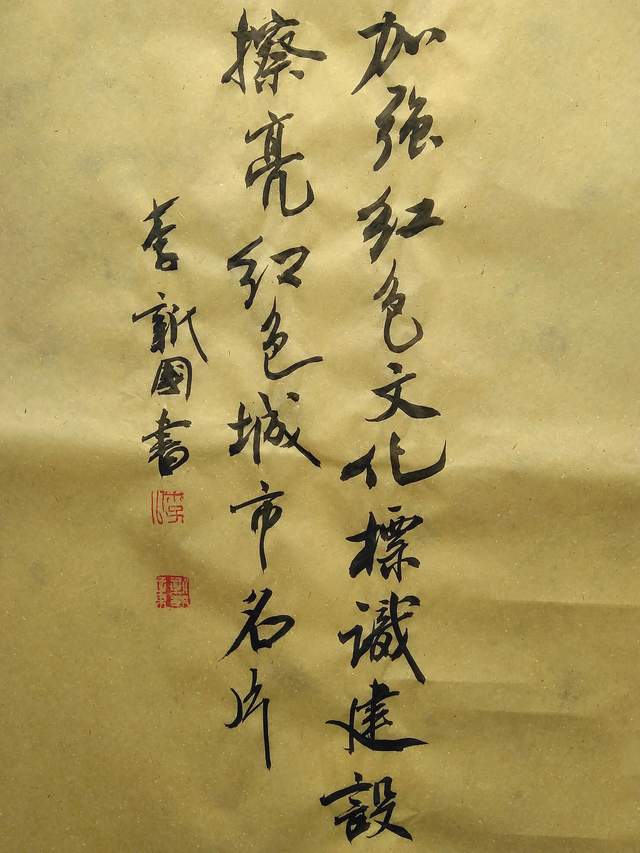 加强红色文化標識建設
擦亮红色城市名片
李新國書